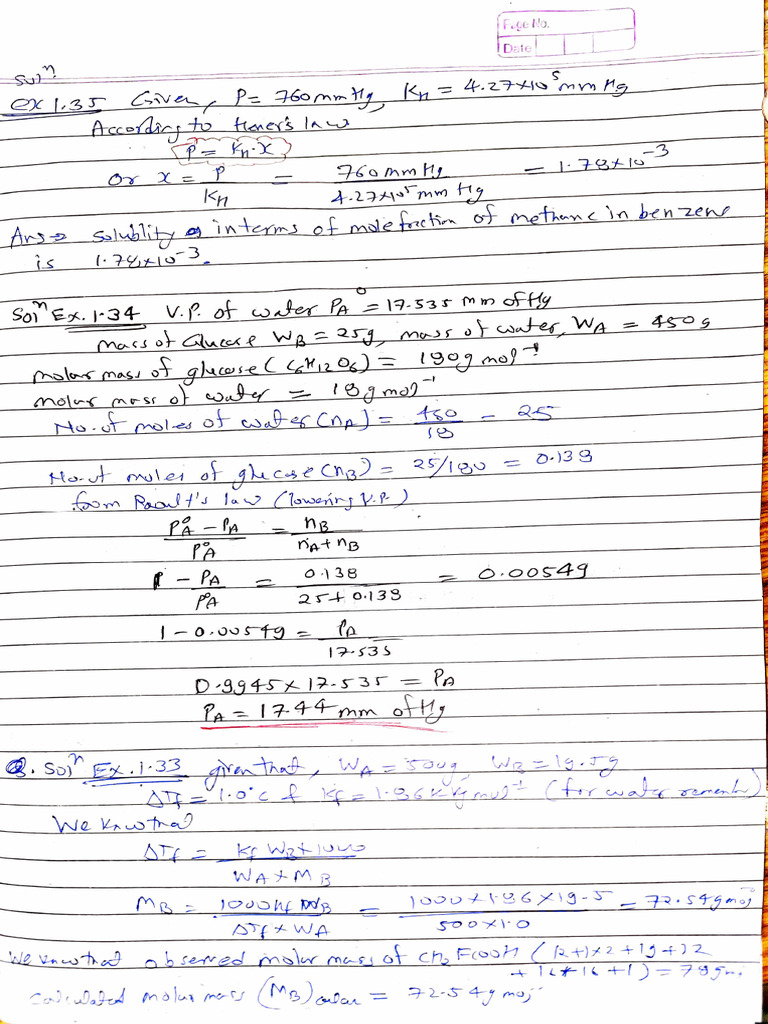 Page No.
Date
Solⁿ
Ex 1.35 Given, P = 760 mm Hg, K_H = 4.27×10⁵ mm Hg
According to Henery's law
P = K_H·x
Or x = P/K_H = 760 mm Hg / 4.27×10⁵ mm Hg = 1.78×10⁻³
Ans⇒ solublity in terms of mole fraction of methane in benzene
is 1.78×10⁻³.
Solⁿ Ex. 1.34 V.P. of water P_A° = 17.535 mm of Hg
mass of Glucose W_B = 25g, mass of water, W_A = 450g
molar mass of glucose (C₆H₁₂O₆) = 180g mol⁻¹
molar mass of water = 18g mol⁻¹
No. of moles of water (n_A) = 450/18 = 25
No. of moles of glucose (n_B) = 25/180 = 0.138
from Raoult's law (lowering V.P.)
(P_A° − P_A)/P_A° = n_B/(n_A + n_B)
1 − P_A/P_A° = 0.138/(25 + 0.138) = 0.00549
1 − 0.00549 = P_A/17.535
0.9945 × 17.535 = P_A
P_A = 17.44 mm of Hg
Q. Solⁿ Ex. 1.33 given that, W_A = 500g, W_B = 19.5g
ΔTf = 1.0°C & Kf = 1.86 K Kg mol⁻¹ (for water remember)
We know that
ΔTf = Kf W_B × 1000 / W_A × M_B
M_B = 1000 Kf W_B / ΔTf × W_A = 1000 × 1.86 × 19.5 / 500 × 1.0 = 72.54g mol
We know that observed molar mass of CH₂FCOOH (12+1×2+19+12
+16+16+1) = 78g
calculated molar mass (M_B) = 72.54g mol